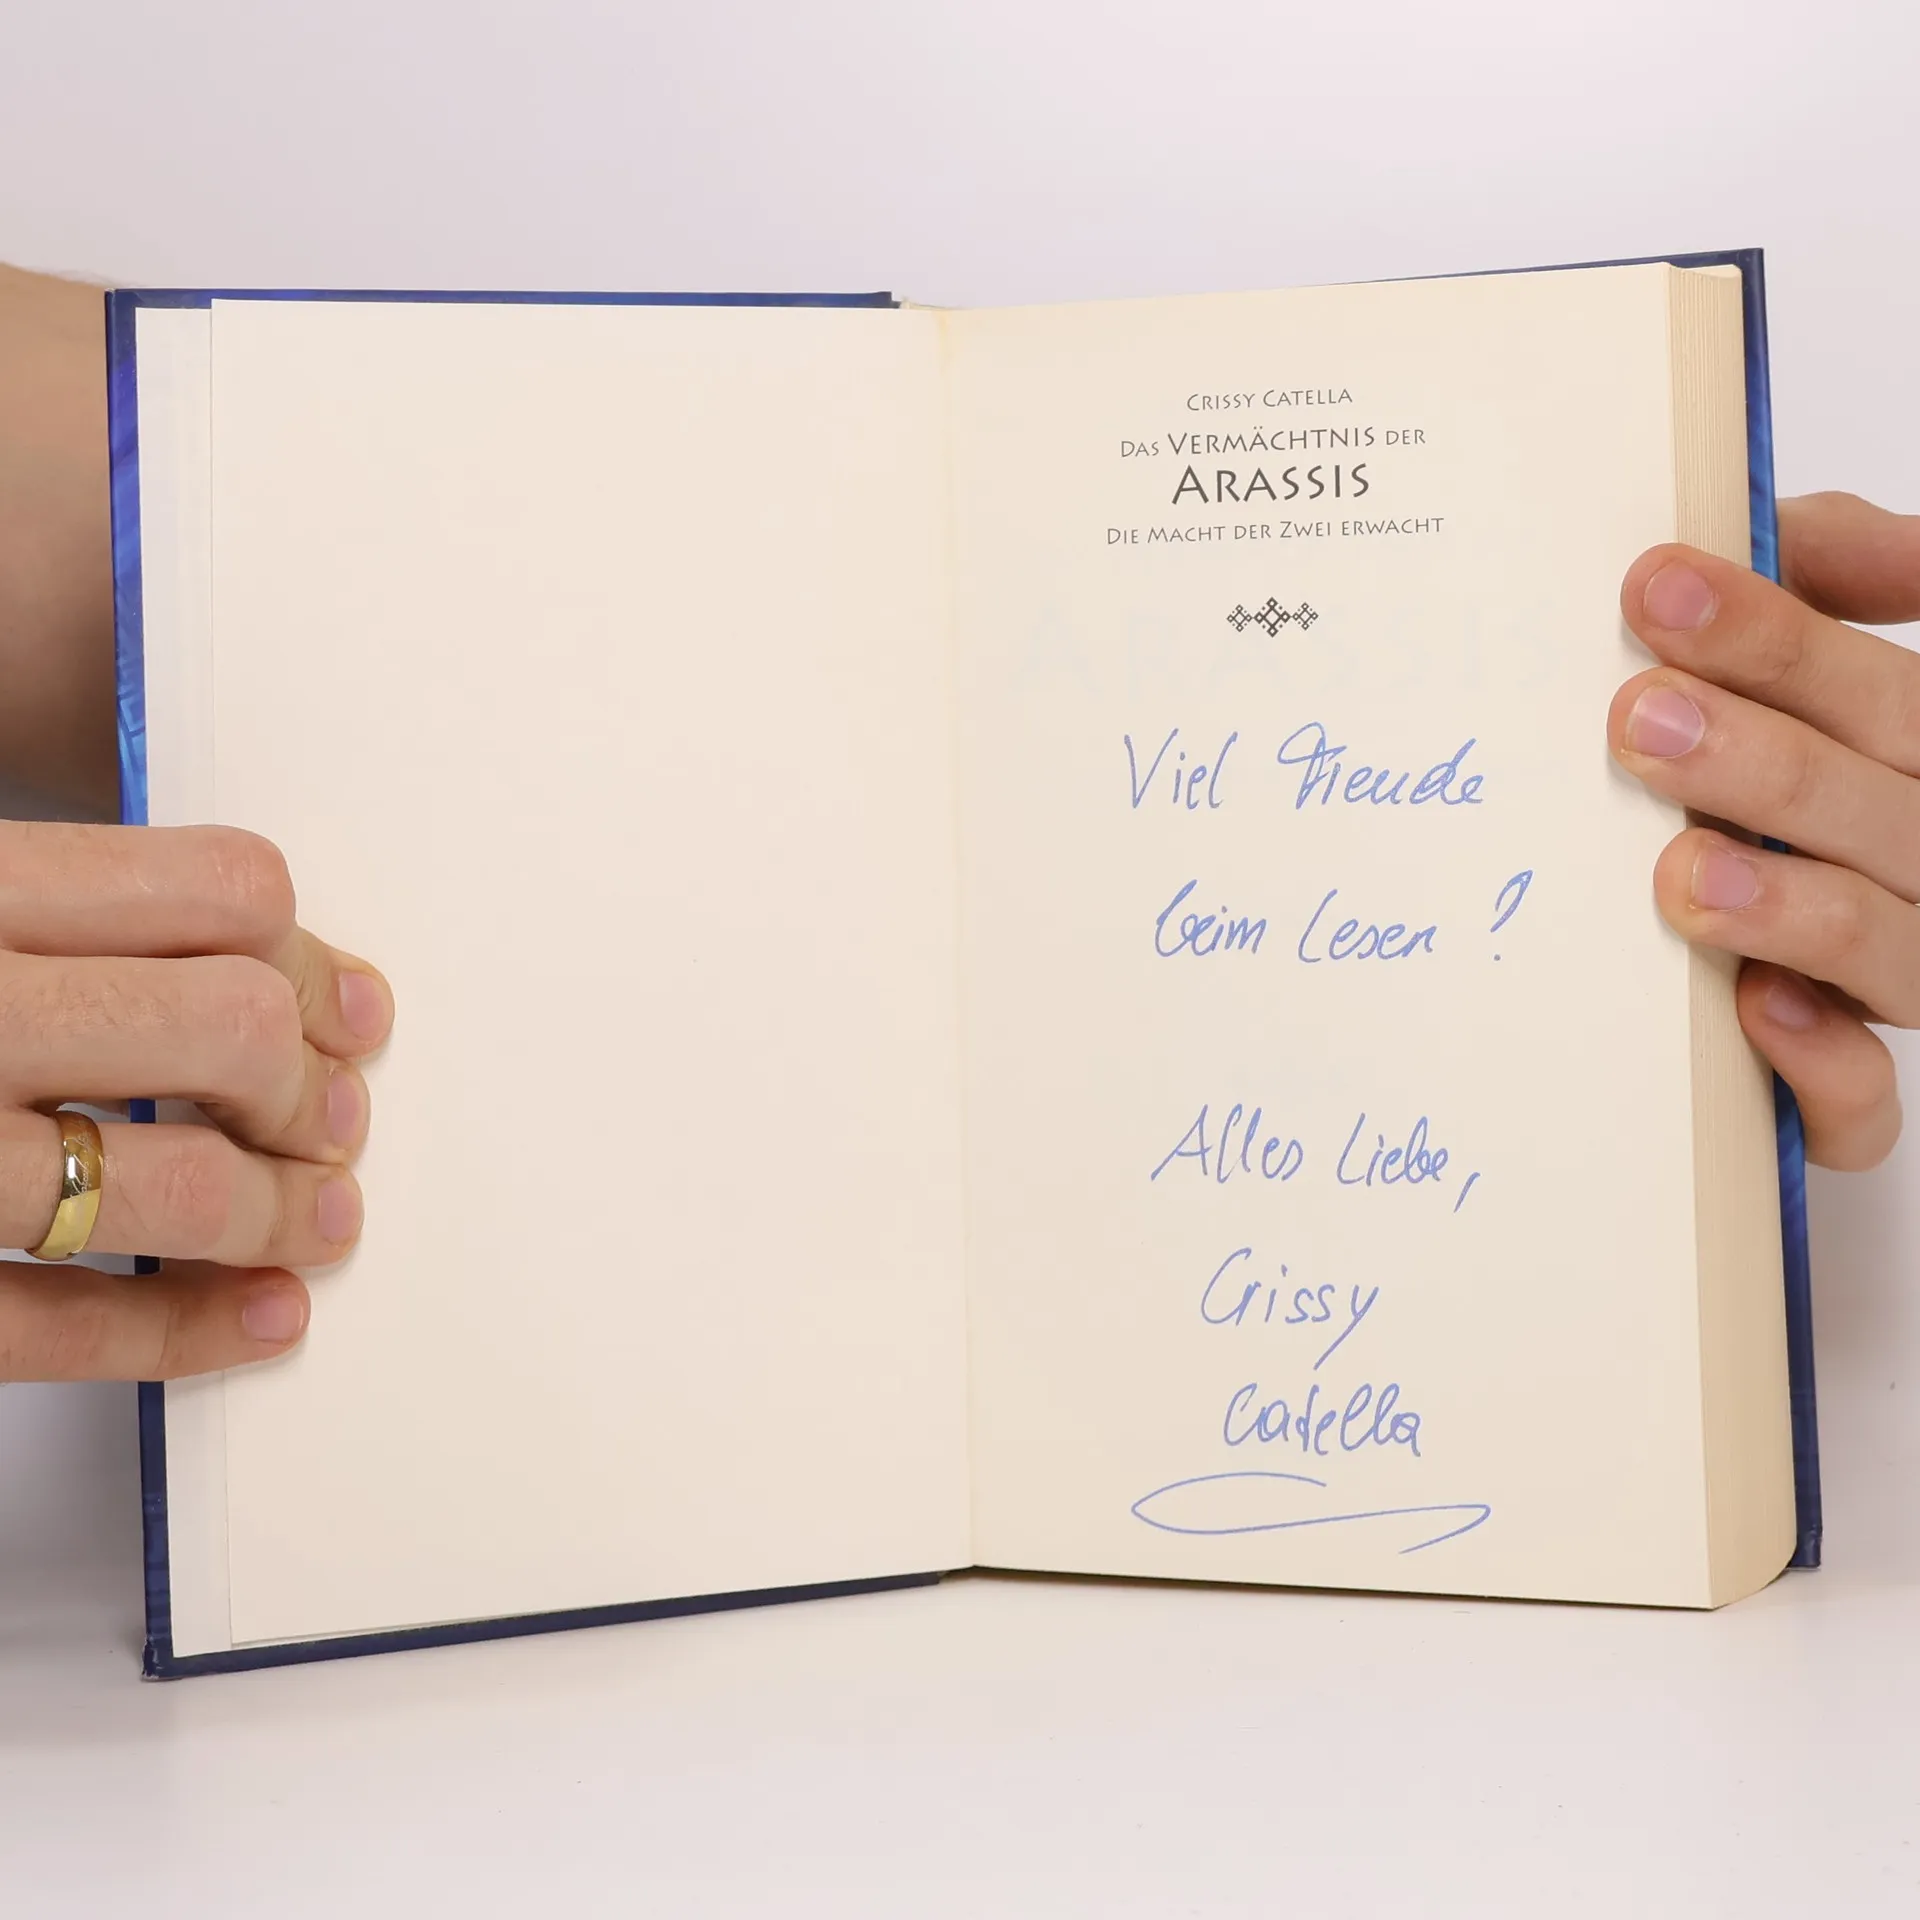 CRISSY CATELLA
DAS VERMÄCHTNIS DER
ARASSIS
DIE MACHT DER ZWEI ERWACHT
Viel Freude
beim Lesen!
Alles Liebe,
Crissy
Catella